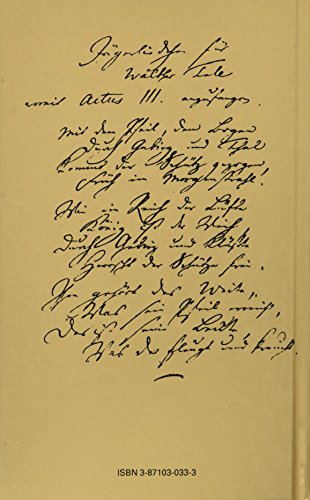 Jägerliedchen für
Walther Tell
Actus III.
Mit dem Pfeil, dem Bogen
Durch Gebirg und Thal
Kommt der Schütz gezogen
Früh im Morgenstrahl.
Wie im Reich der Lüfte
König ist der Weih
Durch Gebirg und Klüfte
Herrscht der Schütze frei.
Ihm gehört das Weite,
Was sein Pfeil erreicht,
Das ist seine Beute
Was da fleugt und kreucht.
ISBN 3-87103-033-3